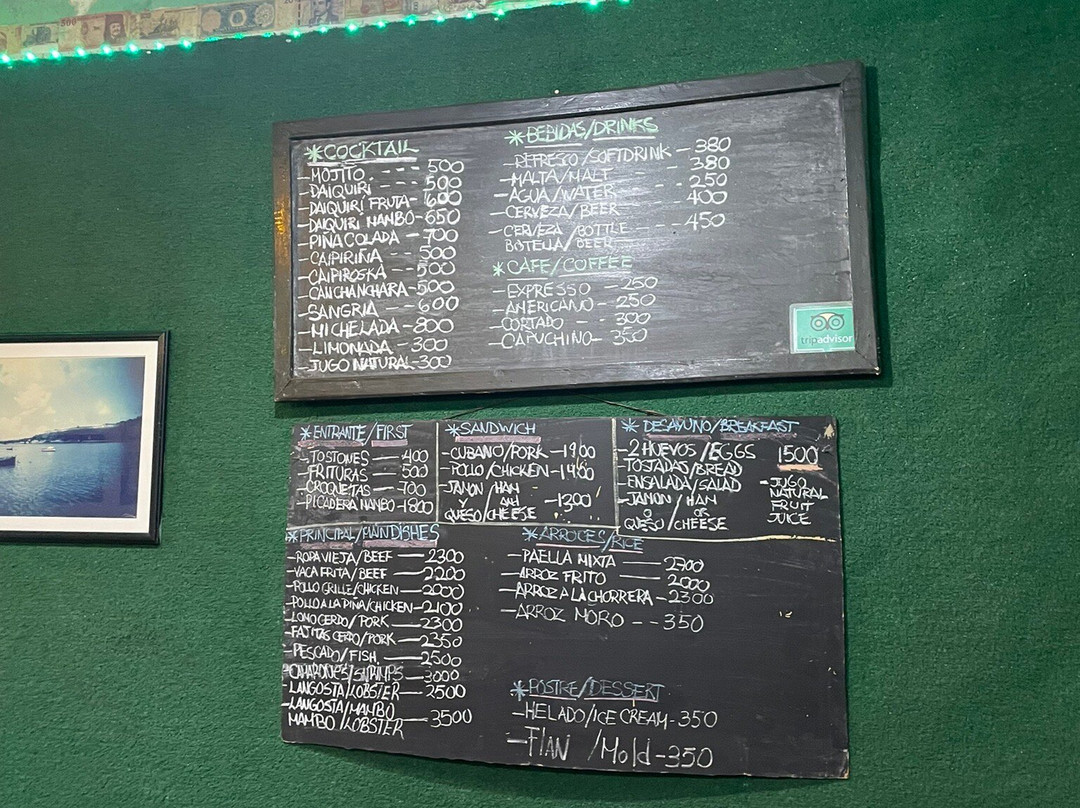 *COCKTAIL
-MOJITO ---- 500
-DAIQUIRI ---- 500
-DAIQUIRI FRUTA-600
-DAIQUIRI MANBO-650
-PIÑA COLADA --700
-CAIPIRIÑA --500
-CAIPIROSKA --500
-CANCHANCHARA-500
-SANGRIA ---600
-MICHELADA-800
-LIMONADA --300
-JUGO NATURAL-300
*BEBIDAS/DRINKS
-REFRESCO/SOFTDRINK-380
-MALTA/MALT --- 380
-AGUA/WATER --- 250
-CERVEZA/BEER --- 400
-CERVEZA/BOTTLE --- 450
BOTELLA/BEER
*CAFE/COFFEE
-EXPRESSO -250
-AMERICANO-250
-CORTADO -- 300
-CAPUCHINO- 350
tripadvisor
*ENTRANTE/FIRST
-TOSTONES-400
-FRITURAS-500
-CROQUETAS-700
-PICADERA MANBO-1800
*SANDWICH
-CUBANO/PORK-1900
-POLLO/CHICKEN-1400
-JAMON/HAN
Y and -1300
QUESO/CHEESE
*DESAYUNO/BREAKFAST
-2 HUEVOS/EGGS 1500
-TOSTADAS/BREAD
-ENSALADA/SALAD
-JAMON/HAN
O OR
QUESO/CHEESE
-JUGO
NATURAL
FRUIT
JUICE
*PRINCIPAL/MAIN DISHES
-ROPA VIEJA/BEEF-2300
-VACA FRITA/BEEF-2200
-POLLO GRILLE/CHICKEN-2000
-POLLO A LA PIÑA/CHICKEN-2100
-LOMO CERDO/PORK-2300
-FAJITAS CERDO/PORK-2350
-PESCADO/FISH-2500
-CAMARONES/SHRIMPS-3000
-LANGOSTA/LOBSTER-2500
-LANGOSTA/MAMBO
MAMBO/LOBSTER-3500
*ARROCES/RICE
-PAELLA MIXTA-2700
-ARROZ FRITO-2000
-ARROZ A LA CHORRERA-2300
-ARROZ MORO --350
*POSTRE/DESSERT
-HELADO/ICE CREAM-350
-Flan /Mold-350